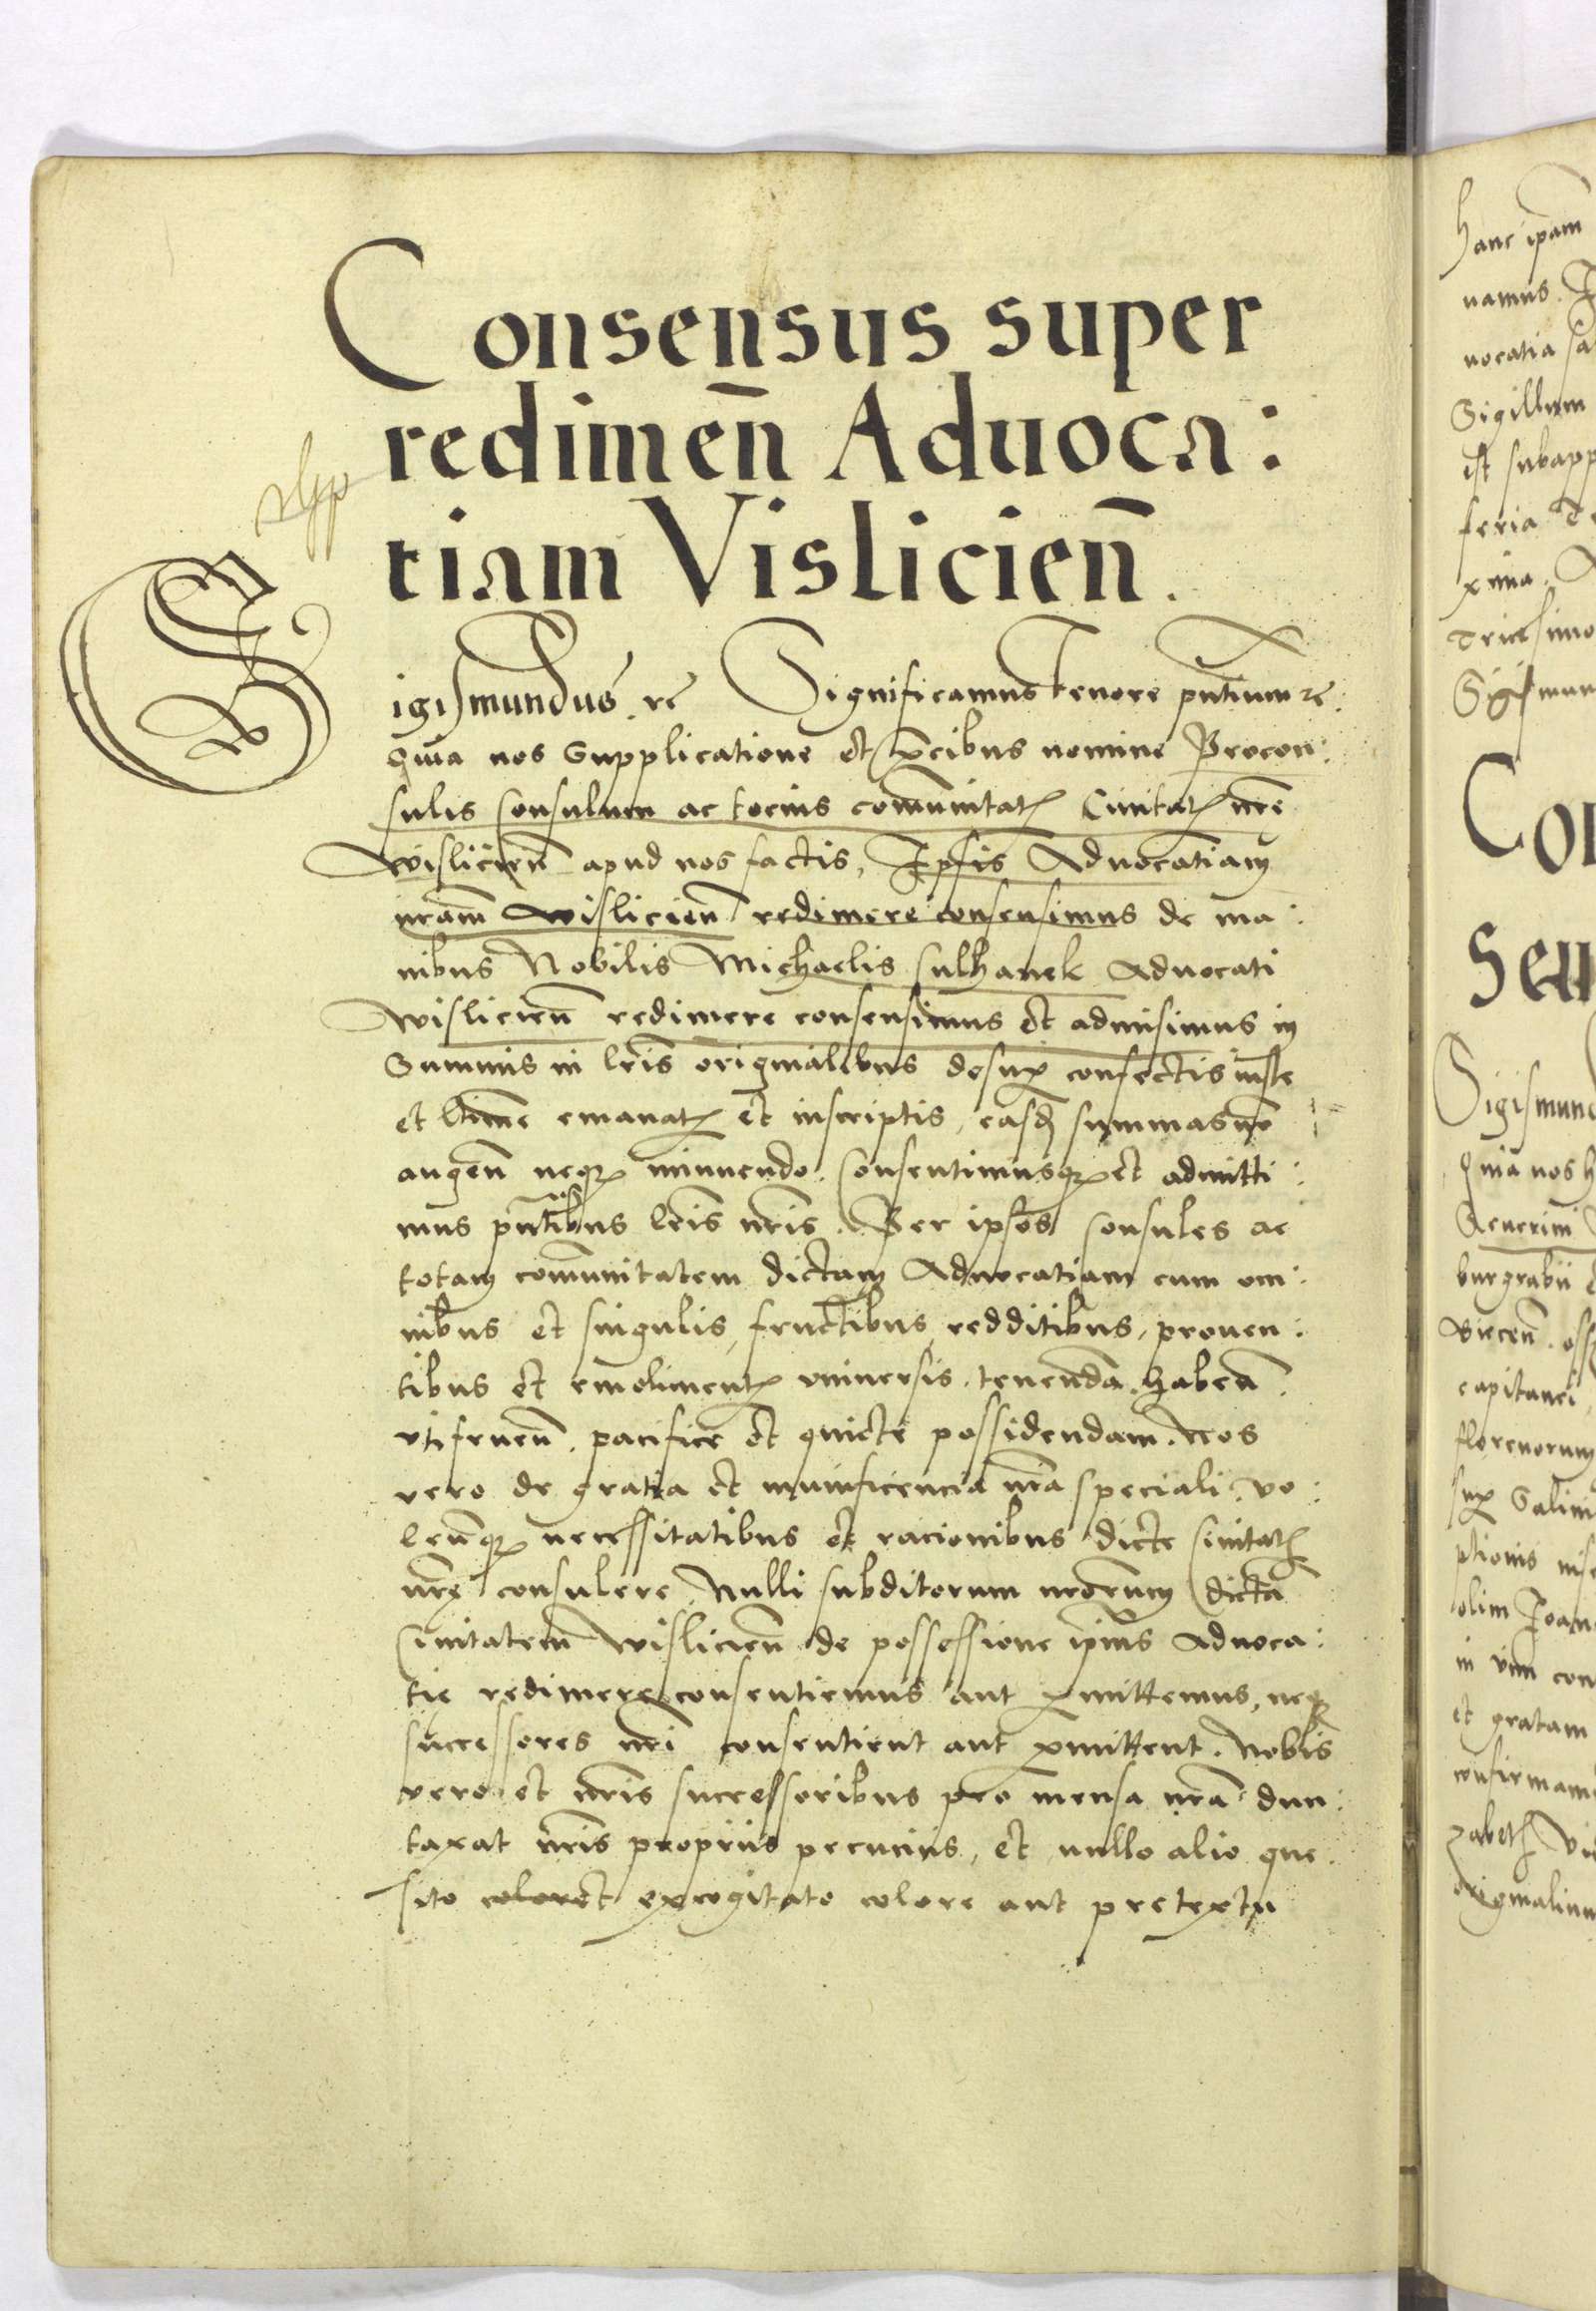 Consensus super
redimen̄ Aduoca:
tiam Vislicien̄.
Sigismundus. rc̄ Significamus tenore pn̄tium rc̄.
Quia nos Supplicatione et p̄cibus nomine Procon:
sulis Consulum ac tocius com̄unitatꝭ Ciuitatꝭ nr̄e
Wislicien̄ apud nos factis, Ipsis Aduocatiam
nr̄am Wislicien̄ redimere consensimus de ma:
nibus Nobilis Michaelis Sulhanek Aduocati
Wislicien̄ redimere consensimus et admisimus in
Summis in lr̄is originalibus desuꝑ confectis iuste
et ltīme emanatꝭ et inscriptis, easdꝫ summas nō
augen̄ neqꝫ minuendo. Consentimusqꝫ et admitti:
mus pn̄tibus lr̄is nr̄is. Per ipsos Consules ac
totam com̄unitatem dictam Aduocatiam cum om:
nibus et singulis, fructibus, redditibus, prouen:
tibus et emolimentꝭ vniuersis. tenendā. habēn.
vtifruen̄. pacifice et quiete possidendam. Nos
vero de gratia et munificencia nr̄a speciali. vo:
len̄qꝫ necessitatibus et racionibus dicte Ciuitatꝭ
nr̄ę consulere, Nulli subditorum nr̄orum dictā
Ciuitatem Wislicien̄ de possessione ip̄ius Aduoca:
tię redimere consentiemus aut ꝑmittemus, neqꝫ
successores nr̄i consentient aut ꝑmittent. Nobis
vero et nr̄is successoribus pro mensa nr̄a dun:
taxat nr̄is propriis pecuniis, et nullo alio que
sito colore et excogitato colore aut pretextu
Hanc ip̄am
uamus.
uocatia
Sigillum
est
feria
xima.
Tricesimo
Sigismun
Con
Sen
Sigismun
Quia nos
Seuerini
burgrabii
capitanei
florenorum
suꝑ Salin
ptionis
olim Joan
in vim con
et gratam
confirmam
originalium